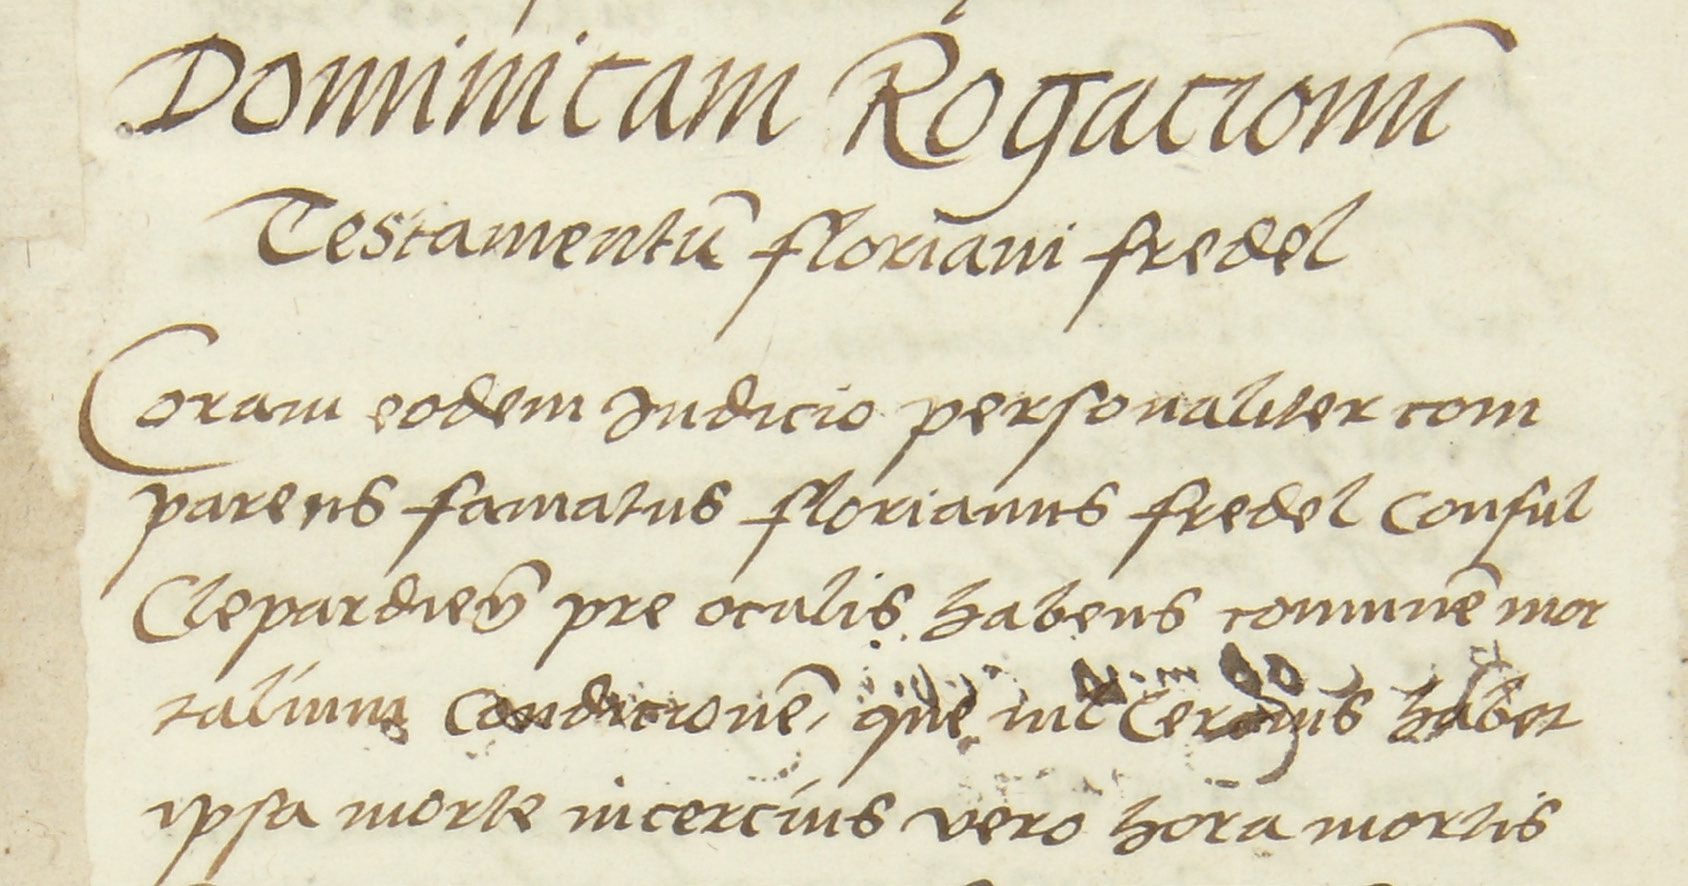 Dominicam Rogacionu̅
Testamentu̅ floriani fredel
Coram eodem Judicio personaliter com
parens famatus florianus fredel Consul
Clepardien̅ pre oculis habens comune̅ mor
talium Condicione̅ que nil Cercius habet
ipsa morte incercius vero hora mortis